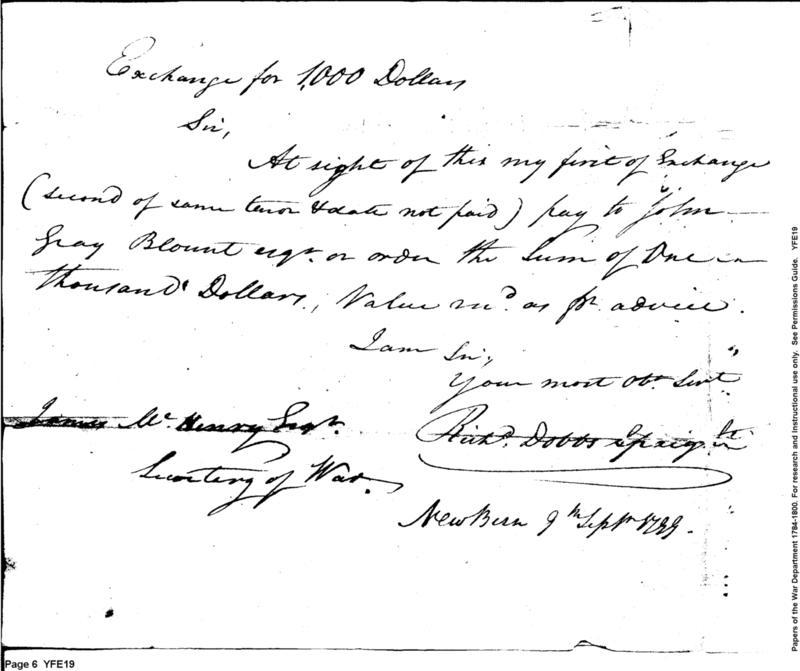 Exchange for 1,000 Dollars
Sir,
At sight of this my first of Exchange
(second of same tenor & date not paid) pay to John
Gray Blount esqr. or order the Sum of One
thousand Dollars, Value recd. as pr. advice.
I am Sir,
Your most obt. Servt.
James Mc. Henry Esqr.
Richd. Dobbs Spaight
Secretary of War.
New Bern 9th Sepr. 1799.
Page 6 YFE19
Papers of the War Department 1784-1800. For research and instructional use only. See Permissions Guide. YFE19